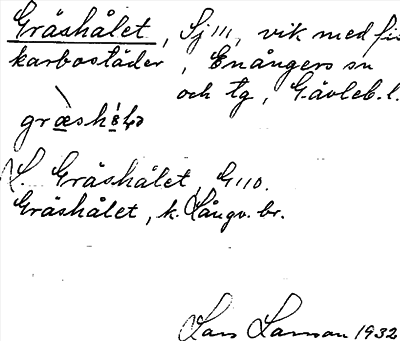 Gräshålet, Sj III, vik med fis
karbostäder, Enångers sn
och tg, Gävleb. l.
L. Gräshålet G 110.
Gräshålet, k. Långv. br.
Lars Larsson 1932